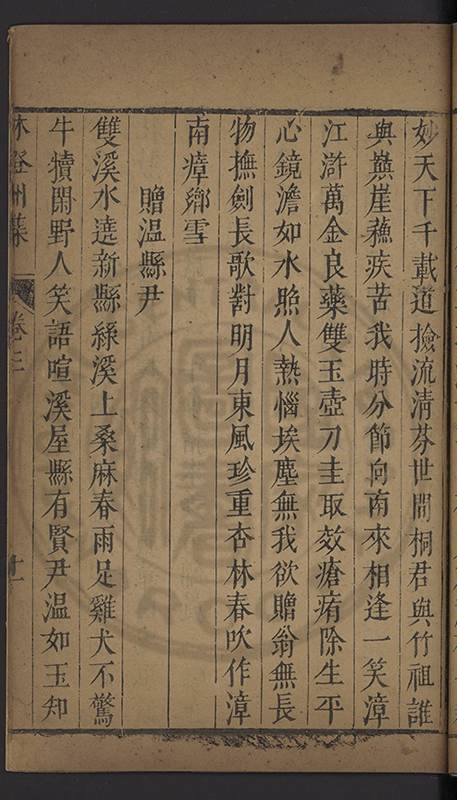 妙天下千載道撿流清芬世間桐君與竹祖誰
與蘓崖蘓疾苦我時分節向南來相逢一笑漳
江滸萬金良藥雙玉壺刀圭取效瘡痏除生平
心鏡澹如水照人熱惱埃塵無我欲贈翁無長
物撫劍長歌對明月東風珍重杏林春吹作漳
南瘴鄉雪
贈溫縣尹
雙溪水遶新縣綠溪上桑麻春雨足雞犬不驚
牛犢閑野人笑語喧溪屋縣有賢尹溫如玉知
林登州集
卷二
十一